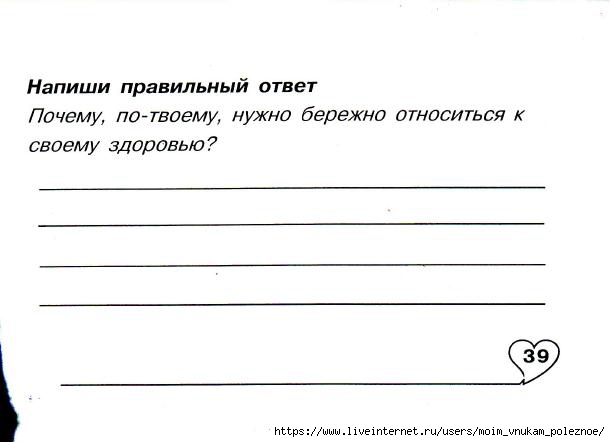 Напиши правильный ответ
Почему, по-твоему, нужно бережно относиться к
своему здоровью?
39
https://www.liveinternet.ru/users/moim_vnukam_poleznoe/